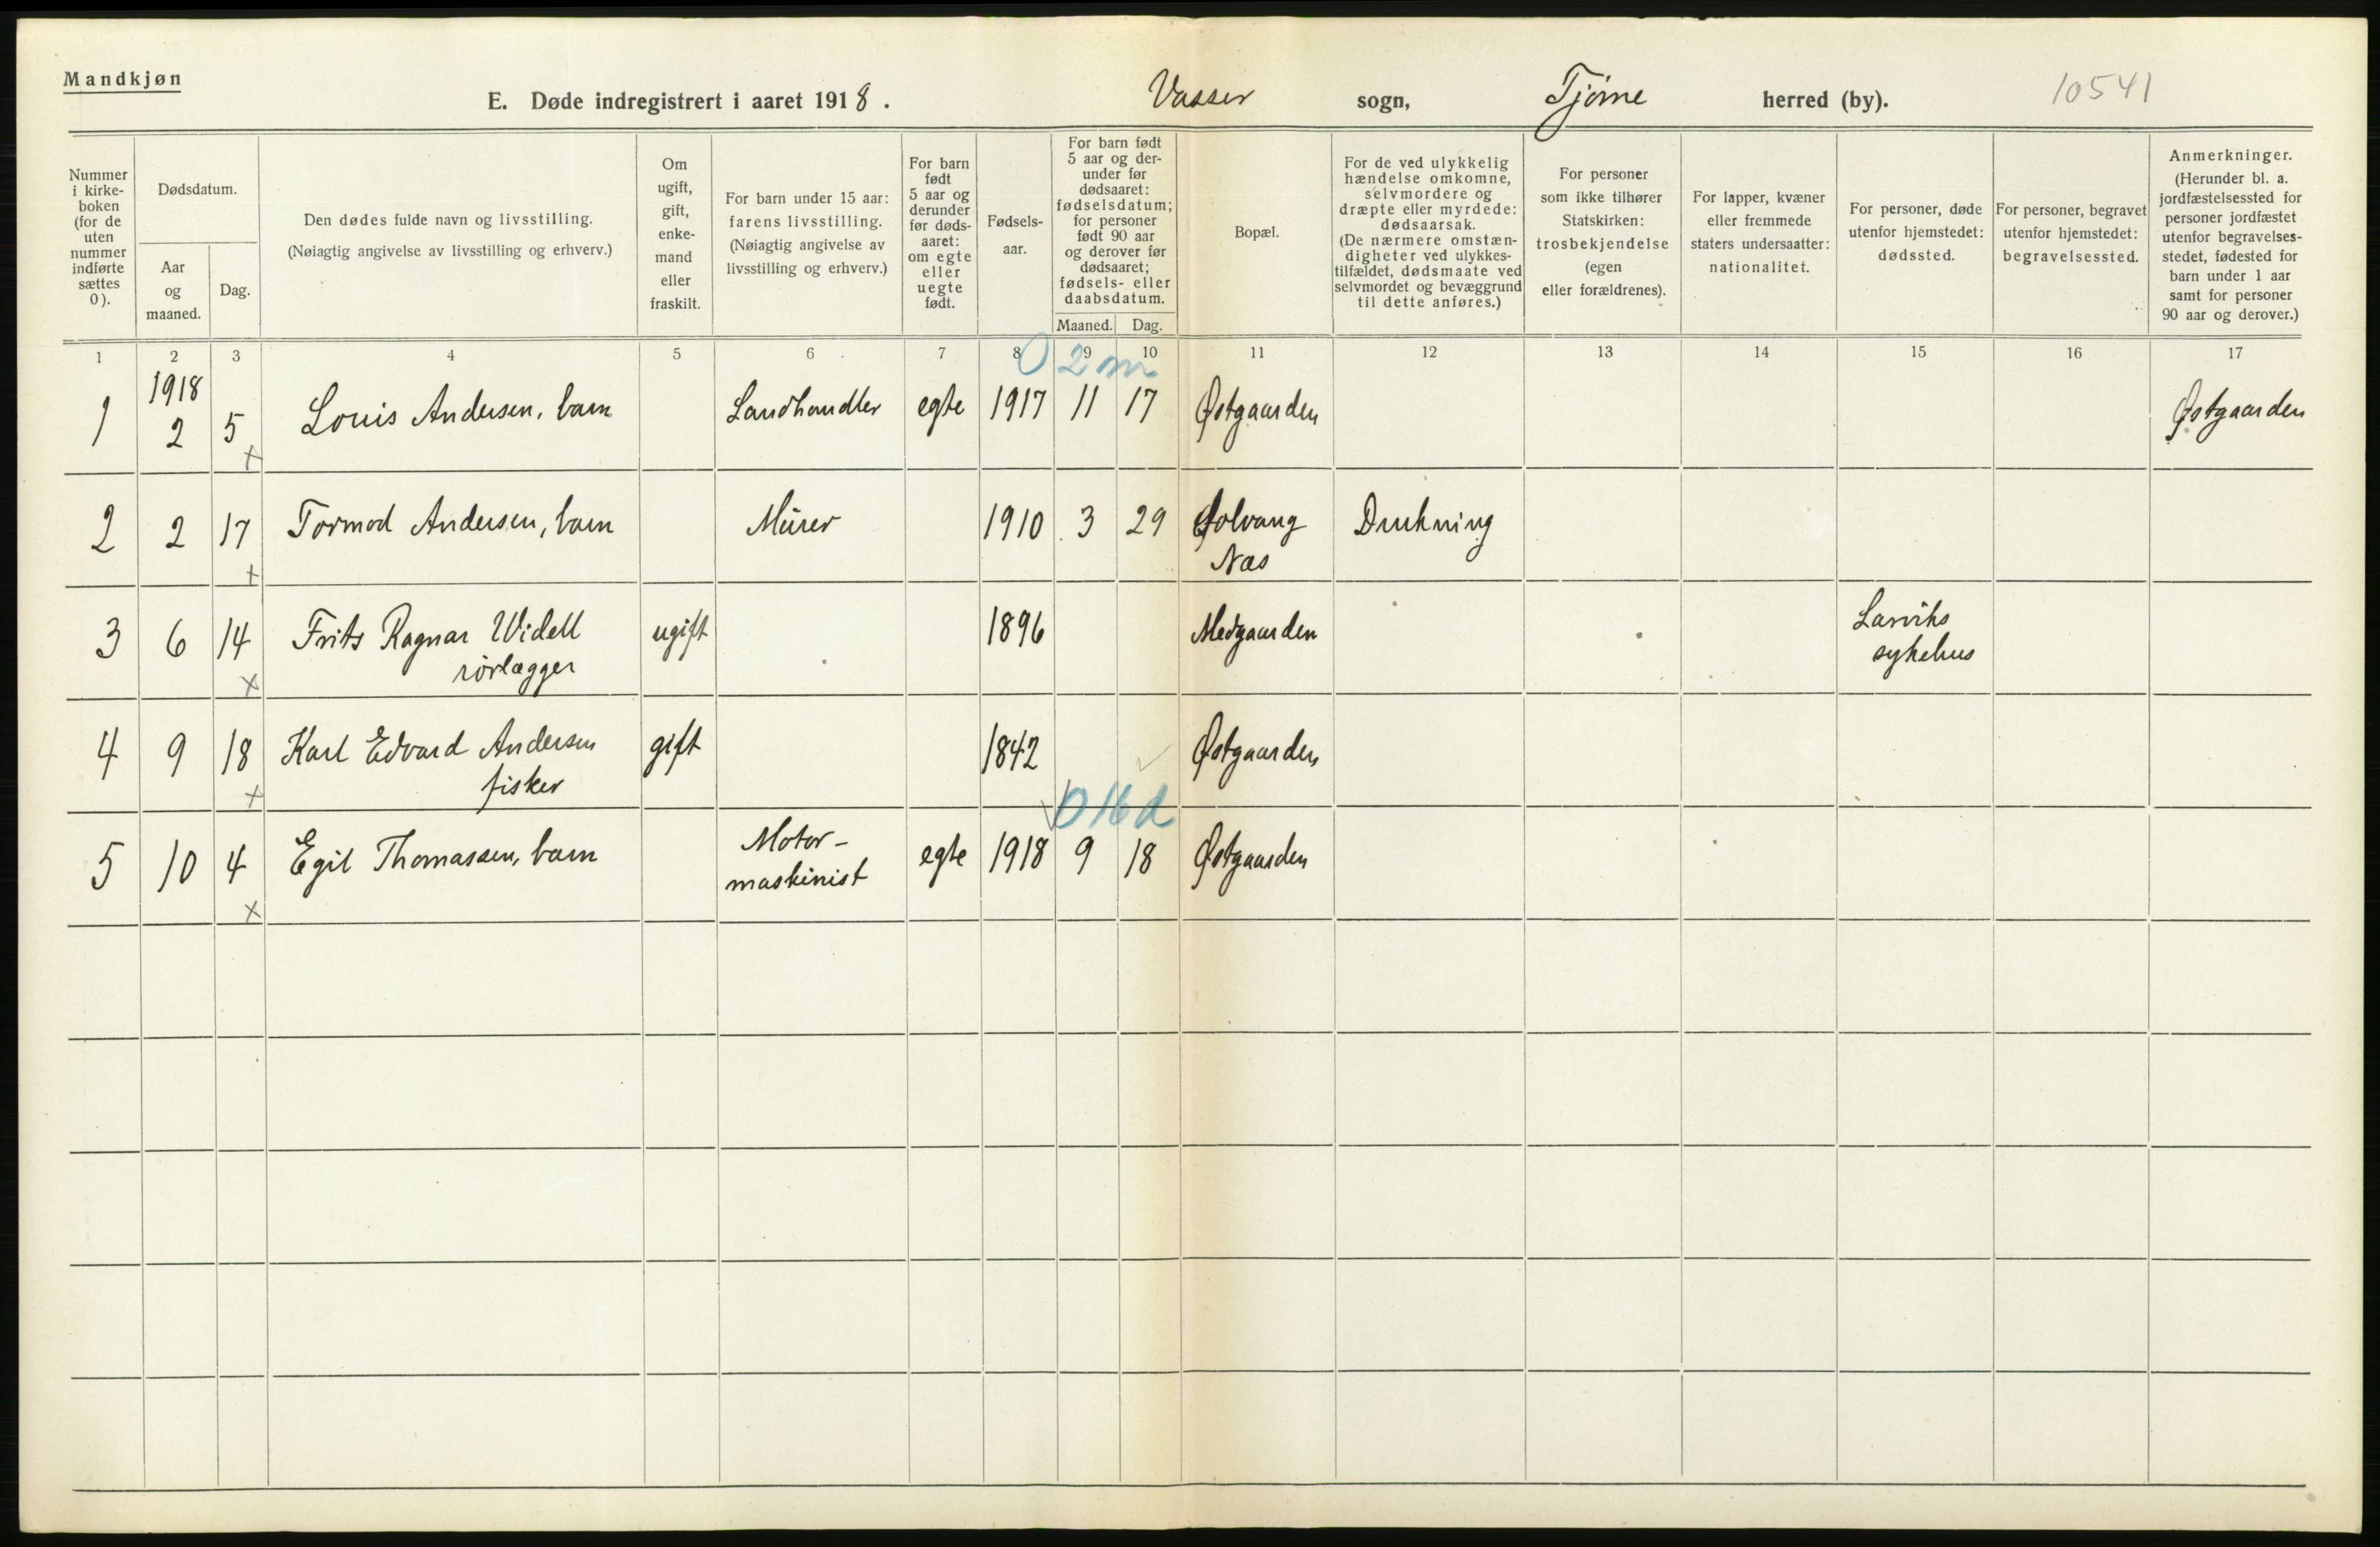 Mandkjøn
E. Døde indregistrert i aaret 1918. Vasser sogn, Tjøme herred (by). 10541
Nummer i kirke-boken (for de uten nummer indførte sættes 0).
Dødsdatum.
Aar og maaned.
Dag.
Den dødes fulde navn og livsstilling.
(Nøiagtig angivelse av livsstilling og erhverv.)
Om ugift, gift, enke-mand eller fraskilt.
For barn under 15 aar: farens livsstilling.
(Nøiagtig angivelse av livsstilling og erhverv.)
For barn født 5 aar og derunder før døds-aaret: om egte eller uegte født.
Fødsels-aar.
For barn født 5 aar og der-under før dødsaaret: fødselsdatum; for personer født 90 aar og derover før dødsaaret; fødsels- eller daabsdatum.
Maaned. Dag.
Bopæl.
For de ved ulykkelig hændelse omkomne, selvmordere og dræpte eller myrdede: dødsaarsak.
(De nærmere omstæn-digheter ved ulykkes-tilfældet, dødsmaate ved selvmordet og bevæggrund til dette anføres.)
For personer som ikke tilhører Statskirken: trosbekjendelse (egen eller forældrenes).
For lapper, kvæner eller fremmede staters undersaatter: nationalitet.
For personer, døde utenfor hjemstedet: dødssted.
For personer, begravet utenfor hjemstedet: begravelsessted.
Anmerkninger.
(Herunder bl. a. jordfæstelsessted for personer jordfæstet utenfor begravelses-stedet, fødested for barn under 1 aar samt for personer 90 aar og derover.)
1 2 3 4 5 6 7 8 9 10 11 12 13 14 15 16 17
0 2 m
1918
1 2 5 Louis Andersen, barn Landhandler egte 1917 11 17 Østgaarden Østgaarden
x
2 2 17 Tormod Andersen, barn Murer 1910 3 29 Solvang Drukning
Næs
x
3 6 14 Frits Ragnar Widell ugift 1896 Medgaarden Larviks
rørlægger sykehus
x
4 9 18 Karl Edvard Andersen gift 1842 Østgaarden
fisker
x
0 16 d
5 10 4 Egil Thomassen, barn Motor- egte 1918 9 18 Østgaarden
maskinist
x